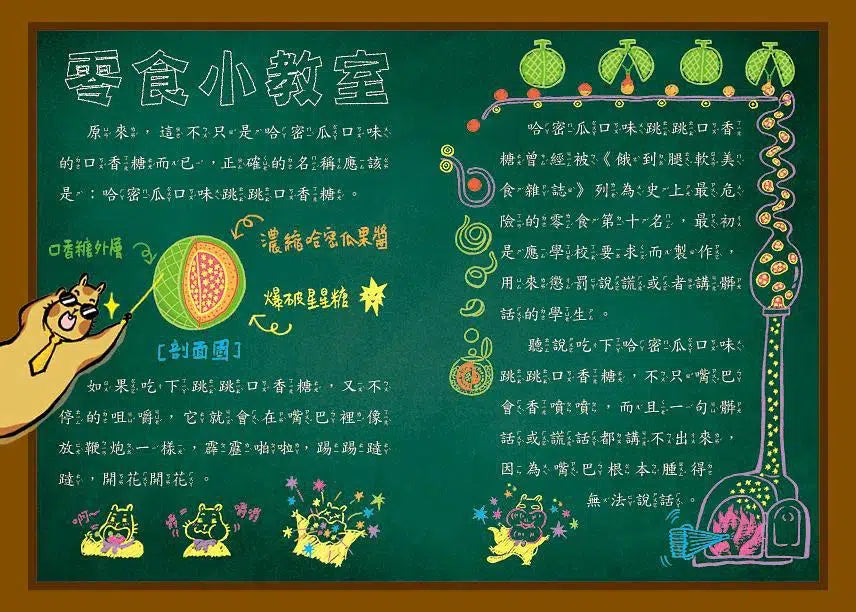 零食小教室
原來，這不只是哈密瓜口味
的口香糖而已，正確的名稱應該
是：哈密瓜口味跳跳口香糖。
口香糖外層
濃縮哈密瓜果醬
爆破星星糖
[剖面圖]
如果吃下跳跳口香糖，又不
停的咀嚼，它就會在嘴巴裡像
放鞭炮一樣，霹靂啪啦，踢踢躂
躂，開花開花。
啊~
嚼
嚼嚼
哈密瓜口味跳跳口香
糖曾經被《餓到腿軟美
食雜誌》列為史上最危
險的零食第十名，最初
是應學校要求而製作，
用來懲罰說謊或者講髒
話的學生。
聽說吃下哈密瓜口味
跳跳口香糖，不只嘴巴
會香噴噴，而且一句髒
話或謊話都講不出來，
因為嘴巴根本腫得
無法說話。